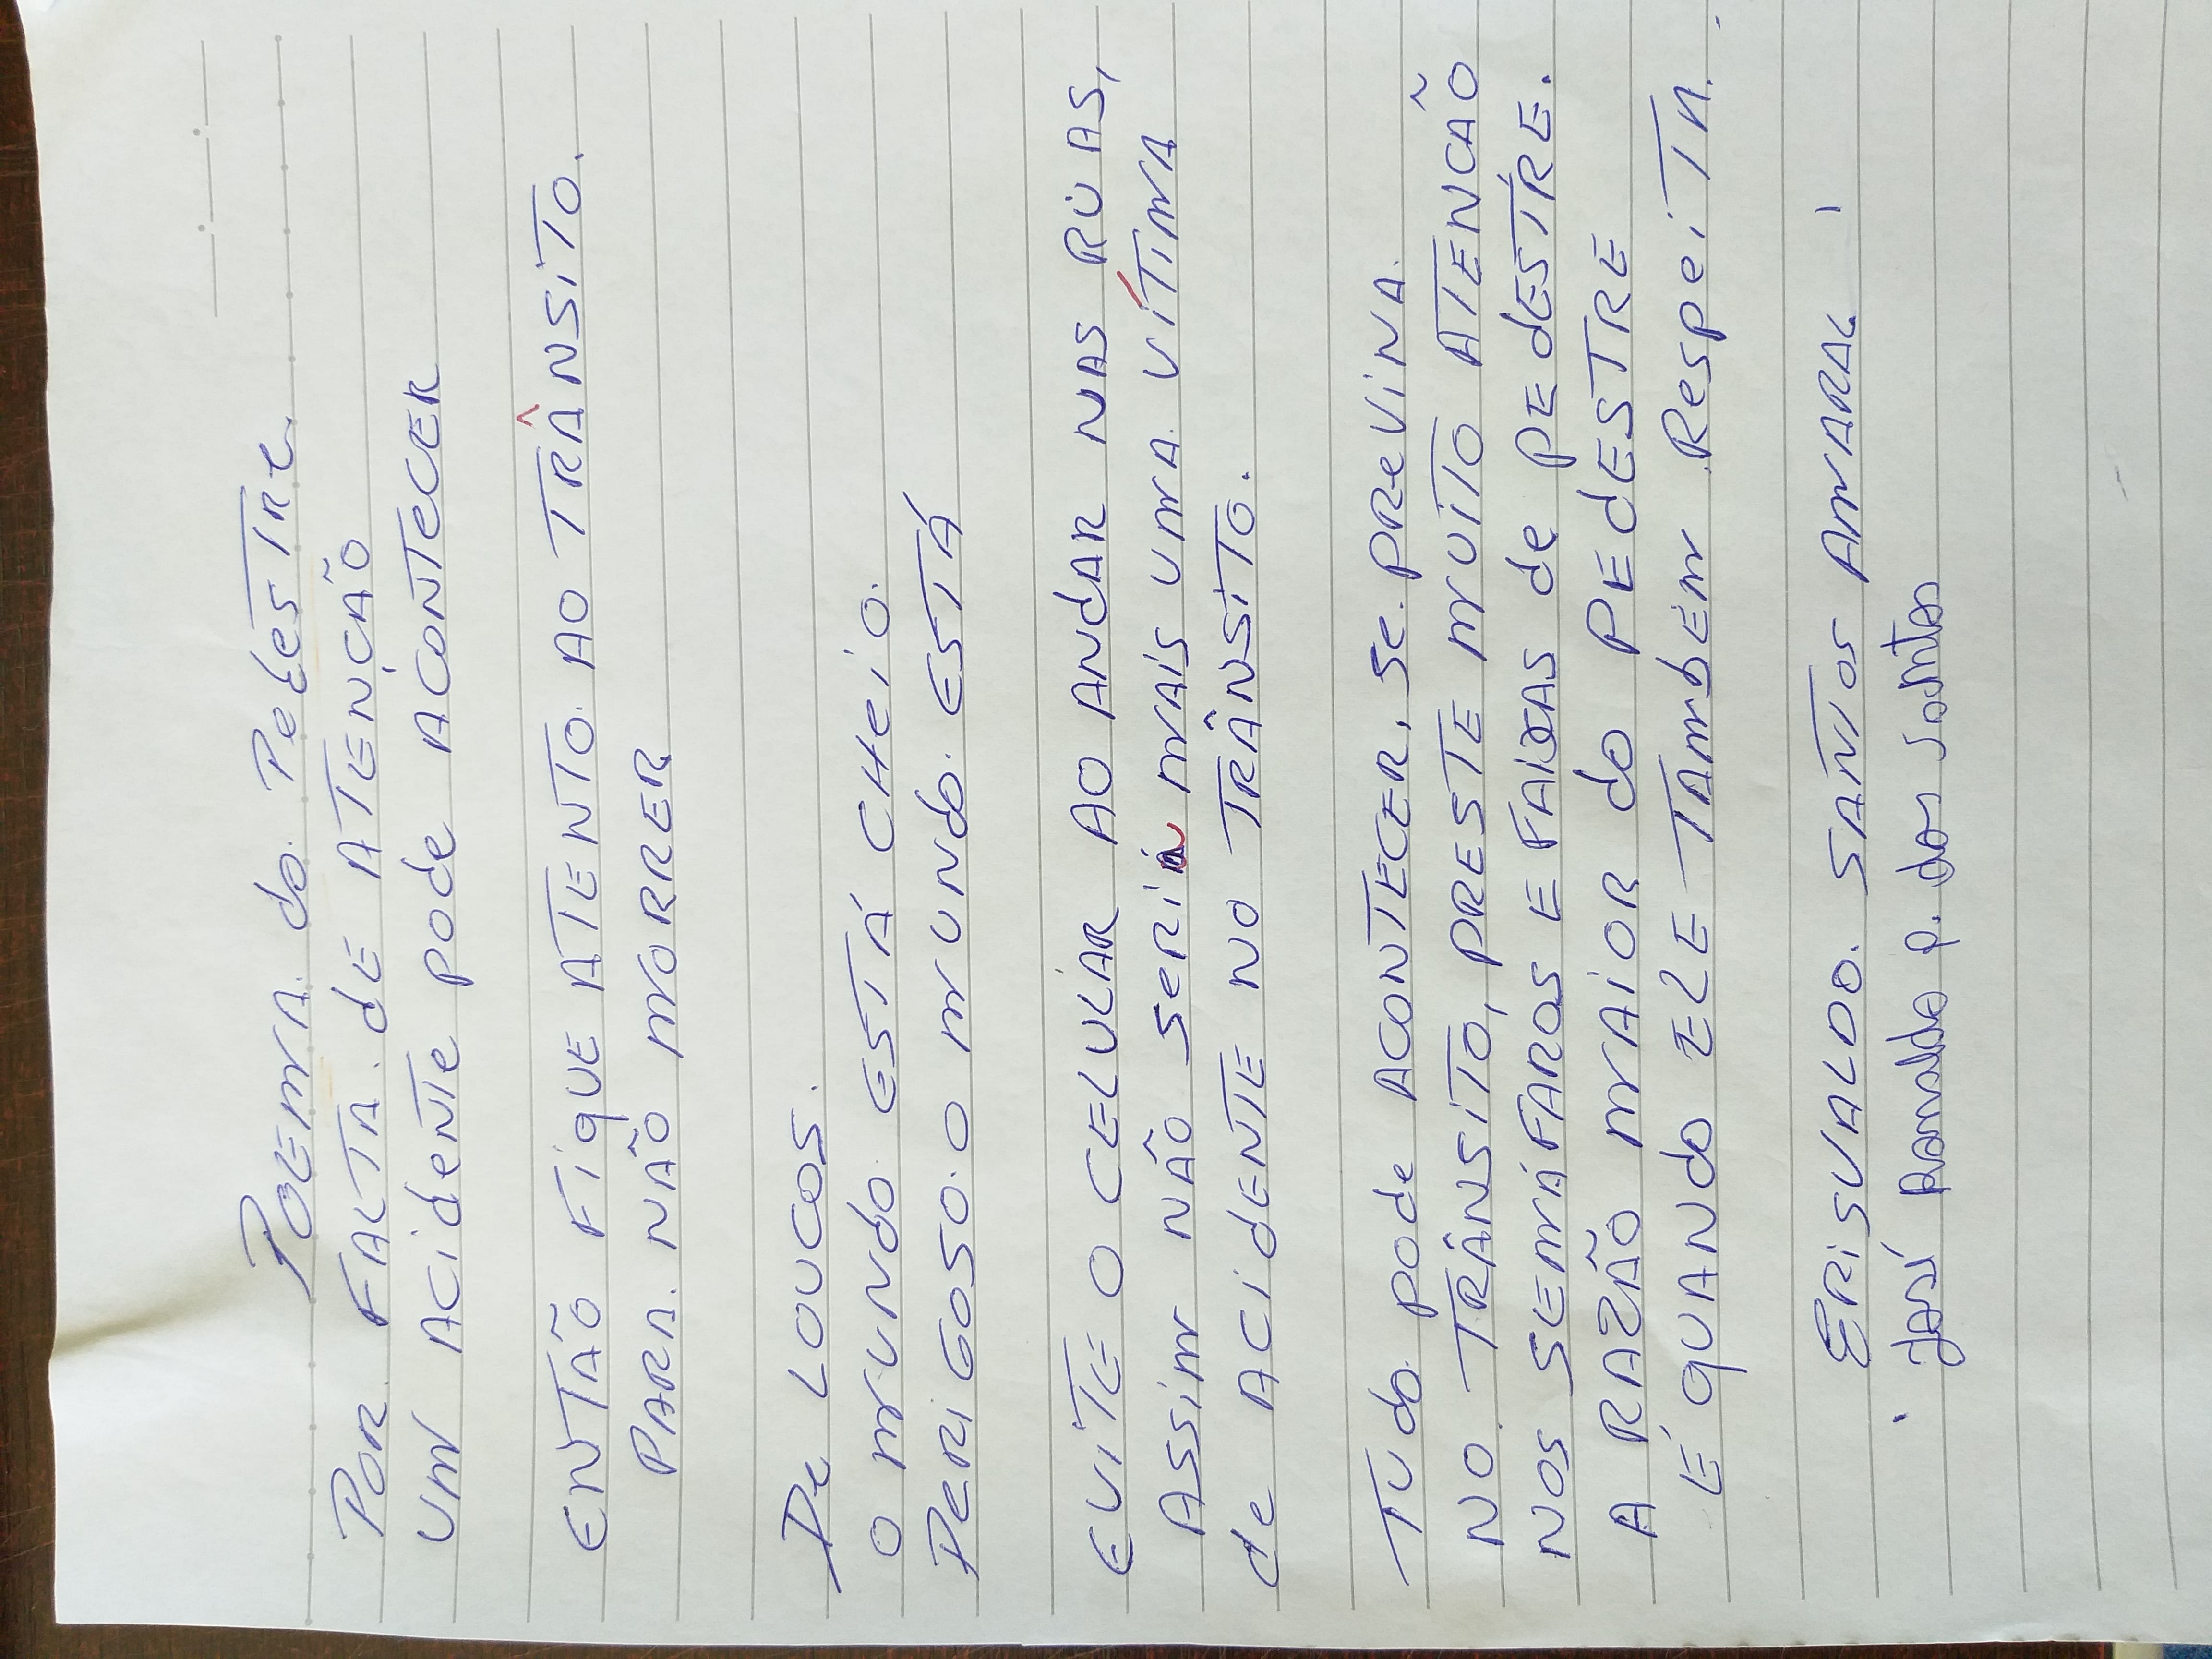 POEMA. do. PedesTRe.
POR FALTA. dE ATENÇÃO
UM ACideNTe pode ACONTeCER
ENTÃO FiqUE ATENTO. AO TRÂNSiTO.
PARA. NÃO MORRER
De LOUCOS.
O MUNdo. ESTÁ CHeiO.
PeRiGOSO. O MUNdo. ESTÁ
EViTE O CELULAR AO ANdAR NAS RUAS,
ASSiM NÃO SeRiA MAiS UMA. VÍTiMA
de ACidENTE NO TRÂNSiTO.
TUdo. pode ACONTECER, Se. PReViNA.
NO. TRÂNSiTO, PRESTE MUiTO ATENCÃO
NOS SEMÁFAROS E FAiXAS de PEdESTRE.
A RAZÃO MAiOR do PEdESTRE
É qUANdo ELE TAMbÉM RespeiTA.
ERiSVALDO. SANTOS AMARAL
José Ronaldo P. dos Santos